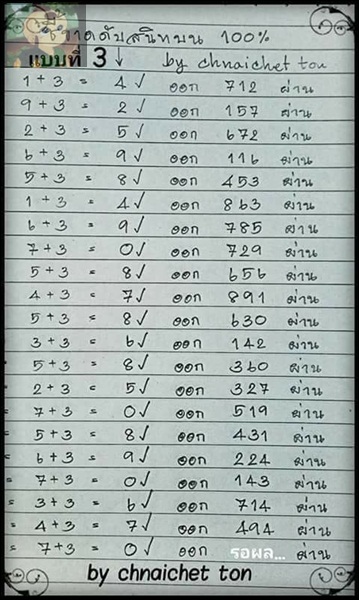 ขาดดับสนิทบน 100%
แบบที่ 3 ↓ by chnaichet ton
1 + 3 = 4 ✓ ออก 712 ผ่าน
9 + 3 = 2 ✓ ออก 157 ผ่าน
2 + 3 = 5 ✓ ออก 672 ผ่าน
6 + 3 = 9 ✓ ออก 116 ผ่าน
5 + 3 = 8 ✓ ออก 453 ผ่าน
1 + 3 = 4 ✓ ออก 863 ผ่าน
6 + 3 = 9 ✓ ออก 785 ผ่าน
7 + 3 = 0 ✓ ออก 729 ผ่าน
5 + 3 = 8 ✓ ออก 656 ผ่าน
4 + 3 = 7 ✓ ออก 891 ผ่าน
5 + 3 = 8 ✓ ออก 630 ผ่าน
3 + 3 = 6 ✓ ออก 142 ผ่าน
5 + 3 = 8 ✓ ออก 360 ผ่าน
2 + 3 = 5 ✓ ออก 327 ผ่าน
7 + 3 = 0 ✓ ออก 519 ผ่าน
5 + 3 = 8 ✓ ออก 431 ผ่าน
6 + 3 = 9 ✓ ออก 224 ผ่าน
7 + 3 = 0 ✓ ออก 143 ผ่าน
3 + 3 = 6 ✓ ออก 714 ผ่าน
4 + 3 = 7 ✓ ออก 494 ผ่าน
7 + 3 = 0 ✓ ออก รอผล... ผ่าน
by chnaichet ton